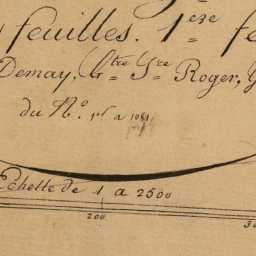 feuilles. 1ere fe
Demay, Gtre Sre Roger, G
du No. 1er a 1081
Echelle de 1 a 2500
200
30